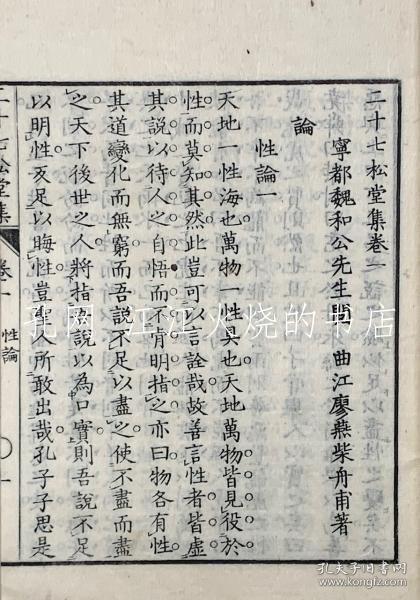 二十七松堂集卷一
寧都魏和公先生閱 曲江廖燕柴舟甫著
論
性論一
天地一性海也萬物一性具也天地萬物皆見役於
性而莫知其然此豈可以言詮哉故善言性者皆虛
其說以待人之自悟而不肯明指之亦曰物各有性
其道變化而無窮而吾說不足以盡之使不盡而盡
之天下後世之人將指吾說以為口實則吾說不足
以明性亥足以晦性豈聖人所敢出哉孔子子思是
二十七松堂集 卷一 性論 〇 一
孔网 江江火烧的书店
孔夫子旧书网